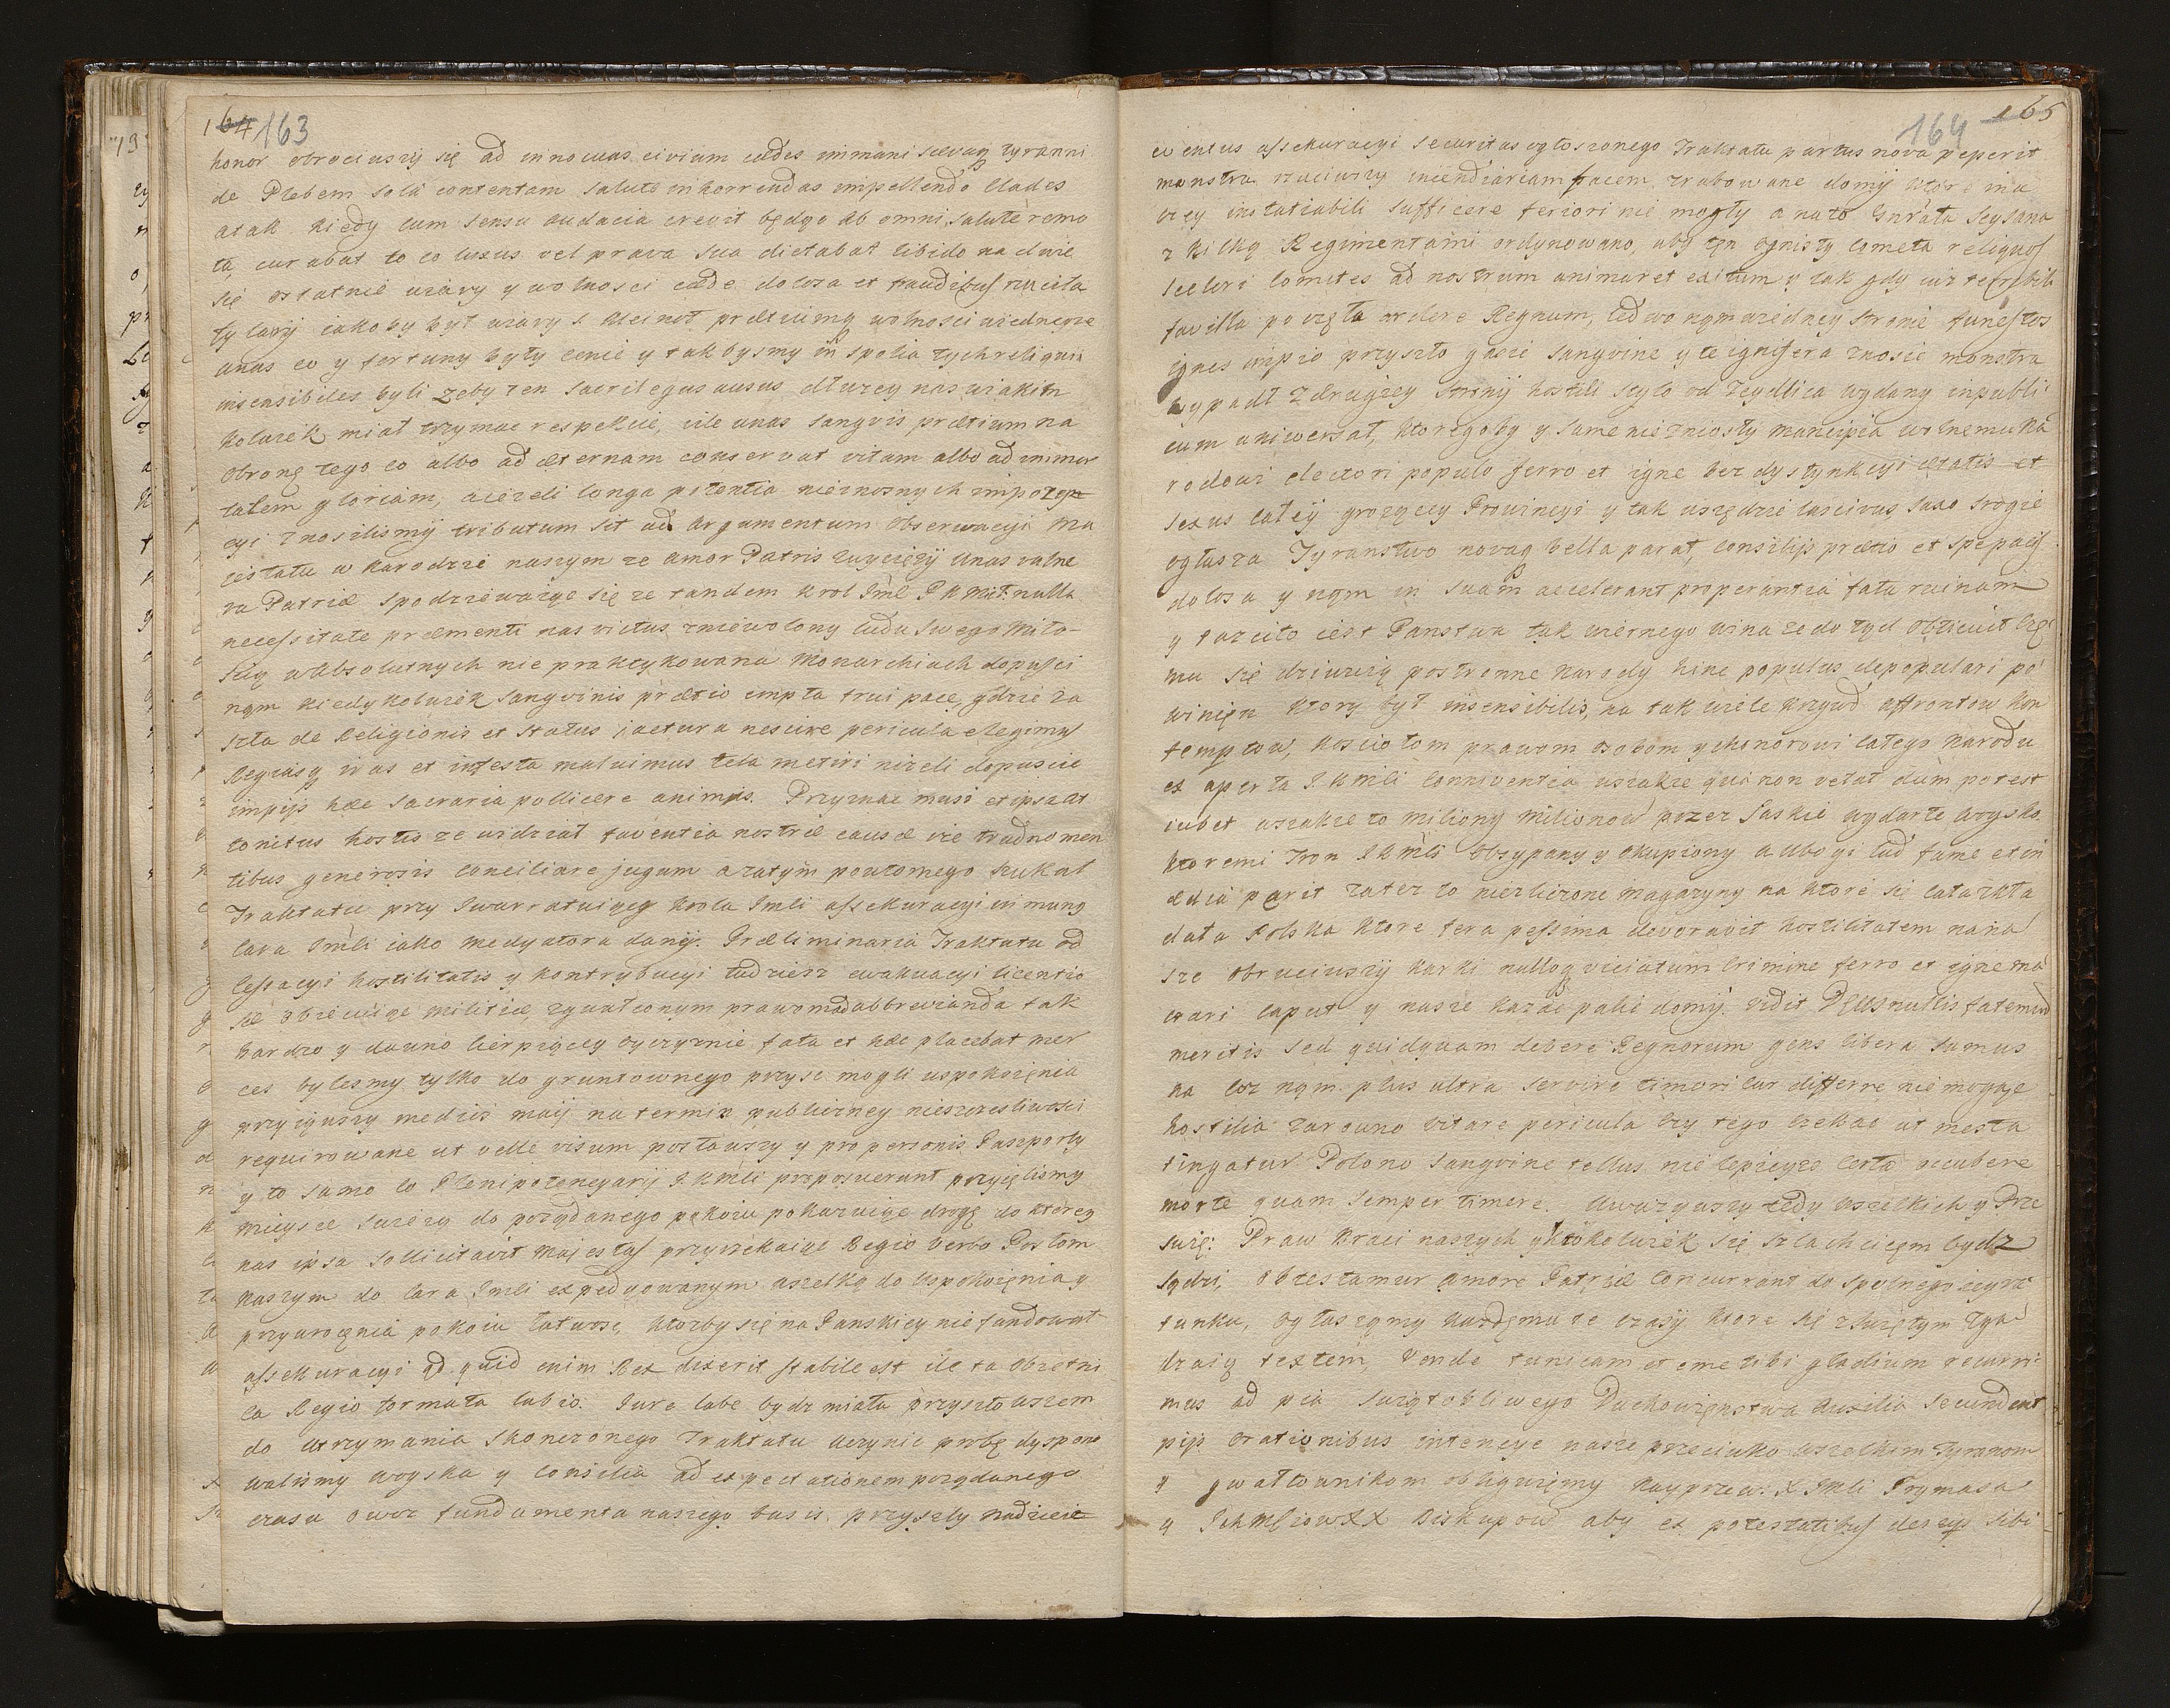 164 163
honor obrociwszy się ad innocuas civium cædes immani sævaq tyranni
de Plebem sola contentam salute in horrendas impellendo clades
a tak kiedy cum sensu audacia crevit będąc ab omni salute remo
ta, curabat to co luxus vel prava sua dictabat libido na dwie
się ostatnie wiary y wolnosci cæde dolosa et fraudibus rzuciła
tylaxy iakoby był wiary S. kleinot prætiumq wolnosci w iedneyze
unas co y fortuny były cenie y tak bysmy in spolia tych reliquii
insensibiles byli zeby ten sacrilegus ausus dłuzey nas w iakim
kolwiek miał trzymac respekcie, ile unas sangvis prætium na
obronę tego co albo ad æternam conservat vitam albo ad immor
talem gloriam, niezeli longa potentia nieznosnych impoten
cyi znosilismy tributum sit ad argumentum obserwacyi Ma
iestatu w Narodzie naszym ze amor Patris zwyciężÿ unas vulne
ra Patriæ spodziewaiąc się ze tandem krol Jmć P. N. Mił. nulla
necessitate præmenti nas victus zniewolony ludu swego miło-
scią wabsolutnych nie praktykowana Monarchiach dopusci
nąm kiedykolwiek sangvinis prætio empta frui pace, gdzie za
szła de Religionis et status jactura nescire pericula elegimus
Regiasq iras et infesta maluimus tela metiri niżeli dopuscic
impijs hæc sacraria pollicere animis. Przyznac musi et ipse at
tonitus hostis ze widział faventia nostræ causæ vie trudno men
tibus generosis conciliare jugum a zatym powtornego szukał
Traktatu przy Gwarratuiącey krola Jmli assekuracyi inimung
Cara Jmli iako Medyatora daney. Præliminaria Traktatu od
Cessacyi hostilitatis y kontrybucyi tudziesz ewakuacyi licentio
sæ obiecuiąc militiæ, zgwałconym prawom ad abbrevianda tak
bardzo y dawno cierpiącey oyczyznie fata et hæc placebat mer
ces bylesmy tylko do gruntownego przyść mogli uspokoięnia
przyiąwszy medziis maij na termin publiczney nieszczesliwosci
requirowane ut velle visum posławszy y pro personis Paszporty
y to samo co Plenipotencyarij J. Kmli proposuerunt przyięlismy
mieysce swiezą do poządanego pokoiu pokazuiąc drogę do ktorey
nas ipsa sollicitavit Majestas przyrzekaiąc Regio verbo Posłom
Naszym do Cara Jmli expedyowanym wszelką do uspokoięnia y
przywroęnia pokoiu łatwosc, ktozby się na Panskiey nie fundował
assekuracyi qd quid enim Rex dixerit stabile est ile ta obietni
ca Regio formata labio. Jure labe bydz miała przyszło wszem
do utrzymania skonczonego Traktatu uczynic probę dyspono
walismy woysku y consilia ad expectationem poządanego
czasu owoz fundamenta naszego basis. przyszły nadzieie
164 165
eventus assekuracyi securitas ogłoszonego Traktatu partus nova peperit
monstra rzuciwszy incendiariam facem zrabowane domÿ ktore ina
czey instatiabili sufficere feriori nie mogły a na to Gnrała Seysana
z kilką Regimentami ordynowano, aby tęn ognisty cometa reliquos
sceleri comites ad nostrum animaret exitum y tak gdy iuz terribili
favilla poczęła ardere Regnum, ledwo nąm w iedney stronie funestos
ignes impio przyszło gasic sangvine y te ignifera znosic monstra
wypadł z drugiey stronÿ hostili stylo od Zeydlica wydany in publi
cum uniwersał, ktoregoby y same nie zniosły mancipia wolnemu Na
rodowi electori populo ferro et igne bez dystynkcyi ætatis et
sexus całeÿ grożącey Prowincyi y tak wszędzie lascivus Saxo srogie
ogłasza Tyranstwo novaq bella parat, consilijs prætio et spe pacis
dolosa y nąm in suam accelerant properantia fata ruinam
y tazcito iest Panstwa tak wiernego wina ze do tąd obticuit cze
mu się dziwuią postronne Narody hinc populus depopulari po
winięn ktory był insensibilis, na tak wiele krzywd affrontow kon
temptow, kosciołom prawom osobom y honorowi całego Narodu
ex aperta J. Kmli conniventia wszakze qui non vetat dum potest
iubet wszakze to miliony milionow przez Saskie wydarte woysko.
ktoremi Tron J. Kmli obsypany y okupiony a ubogi lud fame et in
ædia perit za tez to niezliczone magazyny na ktore się cała zkła
dała Polska ktore fera pessima devoravit hostilitatem na na
sze obruciwszÿ karki nulloq viciatum crimine ferro et igne ma
ctari caput y nasze kazac palic domÿ. vidit Deus nullis fatemur
meritis sed quidquam debere Regnorum gens libera sumus
na coz nąm plus ultra servire timori cur differre nie mogąc
hostilia zarowno vitare pericula czy tego czekac ut mesta
tingatur Polono sangvine tellus nie lepieyze certa occubere
morte quam semper timere. Uwazywszy tedy wszelkich y Prze
swię: Praw Braci naszych y ktokolwiek się szlachcicęm bydz
sądzi, obtestamur amore Patriæ concurrant do spolnego iey ra
tunku, ogłasząmy kazdęmu ze czasÿ ktore się z Swiętym zga
dzaią textem, Vende tunicam et eme tibi gladium recurri-
mus ad pia swiątobliwego Duchowięnstwa Auxilia secundent
pijs orationibus intencye nasze przeciwko wszelkim Tyranom
y gwałtownikom obliguiemy Nayprzew: X. JMli Prymasa
y JchMściow XX Biskupow aby ex potestatibus desuper sibi